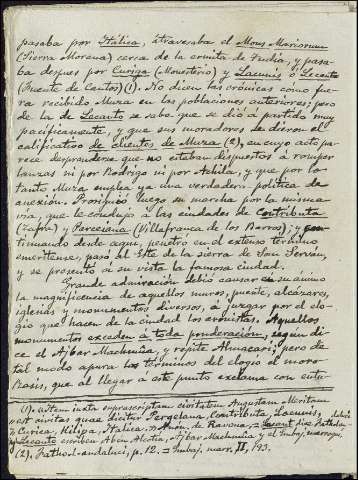 pasaba por Itálica, atravesaba el Mons Mariorum
(Sierra Morena) cerca de la ermita de Tudia, y pasa-
ba despues por Curiga (Monesterio) y Lacunis ó Lecanto
(Fuente de Cantos) (1). No dicen las crónicas cómo fue-
ra recibido Muza en las poblaciones anteriores; pero
de la de Lecanto se sabe que se dió á partido muy
pacíficamente, y que sus moradores le dieron el
calificativo de clientes de Muza (2), en cuyo acto pa-
rece desprenderse que no estaban dispuestos a romper
lanzas ni por Rodrigo ni por Achila, y que por lo
tanto Muza emplea ya una verdadera política de
anexión. Prosiguió luego su marcha por la misma
vía, que le condujo á las ciudades de Contributa
(Zafra) y Perceiana (Villafranca de los Barros); y con-
tinuando desde aquí, penetró en el extenso término
emeritense, pasó al Este de la sierra de San Serván,
y se presentó á su vista la famosa ciudad.
Grande admiración debió causar en su ánimo
la magnificencia de aquellos muros, puente, alcázares,
iglesias y monumentos diversos, á juzgar por el elo-
gio que hacen de la ciudad los cronistas. Aquellos
monumentos exceden á toda ponderación, según di-
ce el Ajbar Machmuâ, y repite Almacari; pero de
tal modo apura los términos del elogio el moro
Rasis, que al llegar á este punto exclama con entu-
(1). «Item iuxta suprascriptam civitatem Augustam Meritam
est civitas quae dicitur Pergelena, Contributa, Lacunis,
Curica, Hiliga, Italica.» Anón. de Ravena. = Lacant dice Fatho-l-andaluci
y Lecanto escriben Aben Alcotia, Ajbar Machmuâ y el
(2). Fathol-andaluci, p. 12. = marr. II, 193.